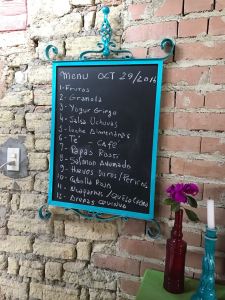 Menu OCT 29/2016
1- Frutas
2- Granola
3- Yogur Griego
4- Salsa Uchuvas
5- Leche Almendras
6- Té - Café
7- Papas Rossi
8- Salmon Ahumado
9- Huevos Duros / Pericos
10- Cebolla Roja
11- / Queso Crema
12- Arepas